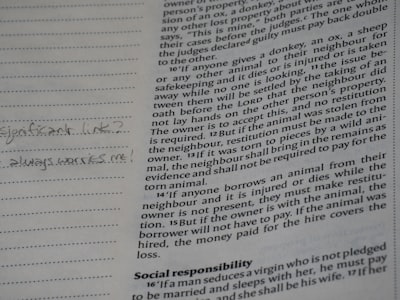 owner of
person's property,
sion of an ox, a donkey,
any other lost property about
says, "This is mine," both parties are to
their cases before the judges. c The one whom
the judges declared d guilty must pay back double
to the other.
10 'If anyone gives a donkey, an ox, a sheep
or any other animal to their neighbour for
safekeeping and it dies or is injured or is taken
away while no one is looking, 11 the issue be-
tween them will be settled by the taking of an
oath before the LORD that the neighbour did
not lay hands on the other person's property.
The owner is to accept this, and no restitution
is required. 12 But if the animal was stolen from
the neighbour, restitution must be made to the
owner. 13 If it was torn to pieces by a wild ani-
mal, the neighbour shall bring in the remains as
evidence and shall not be required to pay for the
torn animal.
14 'If anyone borrows an animal from their
neighbour and it is injured or dies while the
owner is not present, they must make restitu-
tion. 15 But if the owner is with the animal, the
borrower will not have to pay. If the animal was
hired, the money paid for the hire covers the
loss.
Social responsibility
16 'If a man seduces a virgin who is not pledged
to be married and sleeps with her, he must pay
and she shall be his wife. 17 If her
significant link?
always worries me!